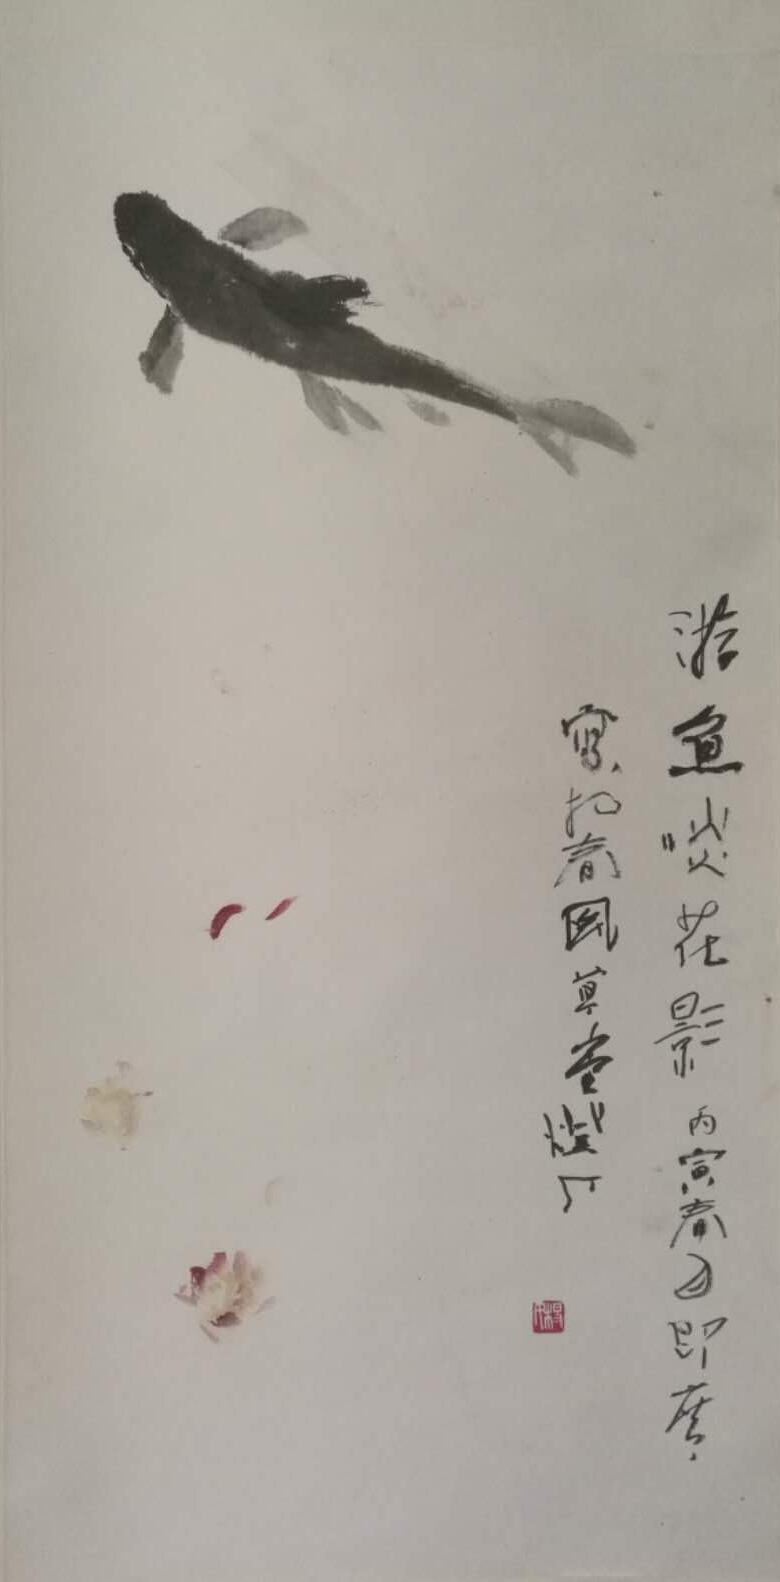 游魚啖花影 丙寅春日即席
寫於春風草堂